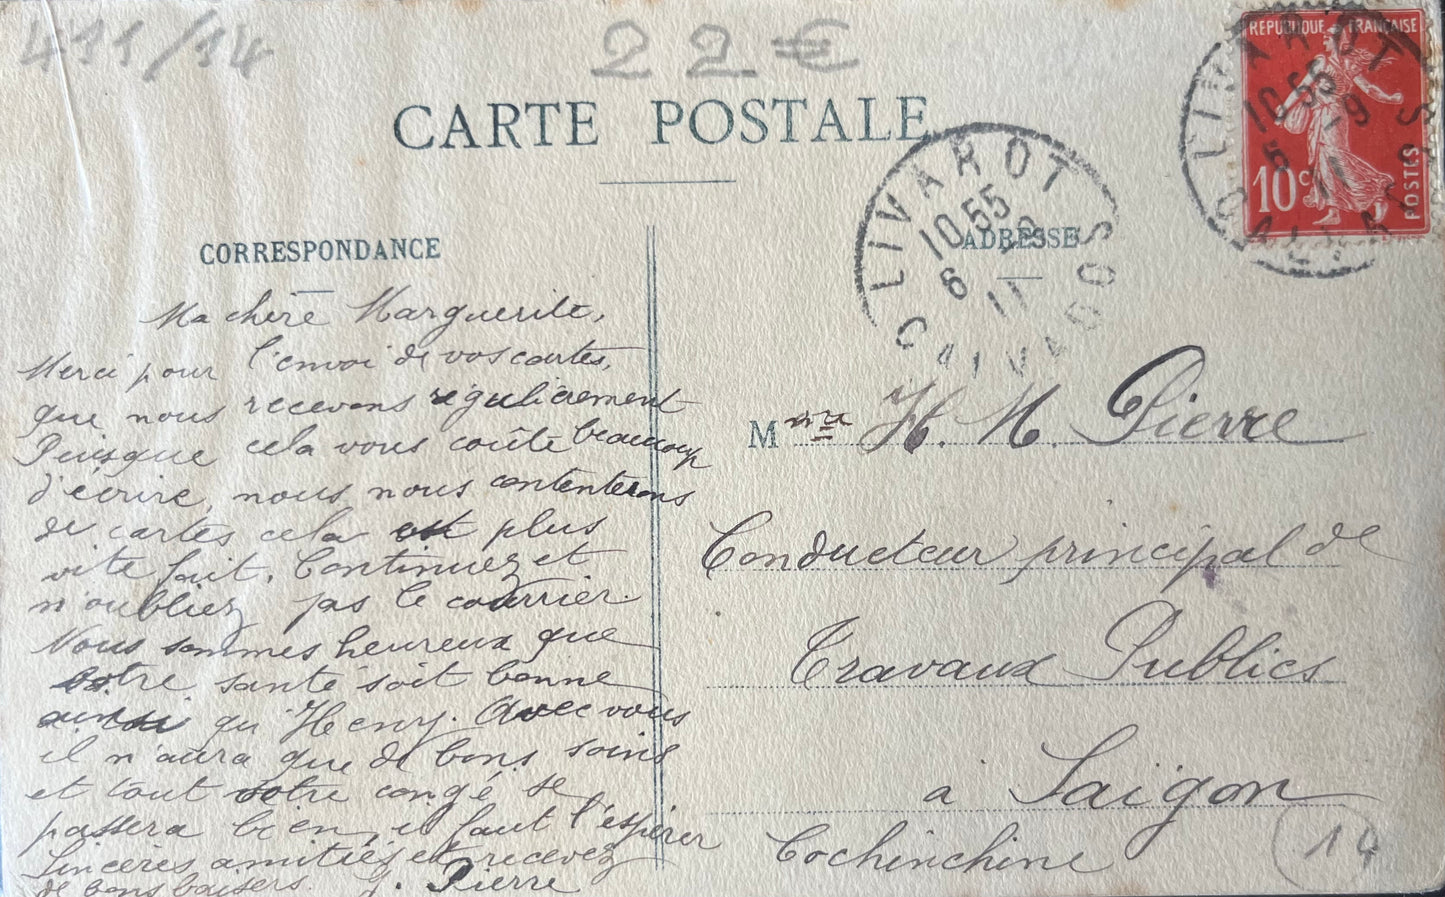 411/14
22€
CARTE POSTALE
RÉPUBLIQUE FRANÇAISE
10c
POSTES
LIVAROT
10.55
CALVADOS
LIVAROT
10.55
6 - 9
11
CALVADOS
CORRESPONDANCE
Ma chère Marguerite,
Merci pour l'envoi de vos cartes,
que nous recevons régulièrement
Puisque cela vous coûte beaucoup
d'écrire, nous nous contenterons
de cartes cela est plus
vite fait. Continuez et
n'oubliez pas le courrier.
Nous sommes heureux que
votre santé soit bonne
ainsi qu'Henry. Avec vous
il n'aura que de bons soins
et tout votre congé se
passera bien, il faut l'espérer
Sincères amitiés et recevez
de bons baisers. J. Pierre
ADRESSE
Mme H. M. Pierre
Conducteur principal de
Travaux Publics
à Saïgon
Cochinchine
14